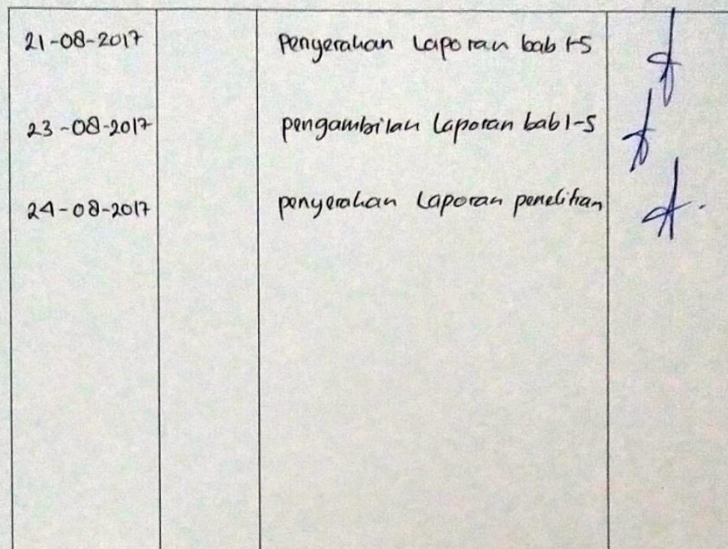 21-08-2017 Penyerahan Laporan bab 1-5
23-08-2017 pengambilan Laporan bab 1-5
24-08-2017 penyerahan Laporan penelitian